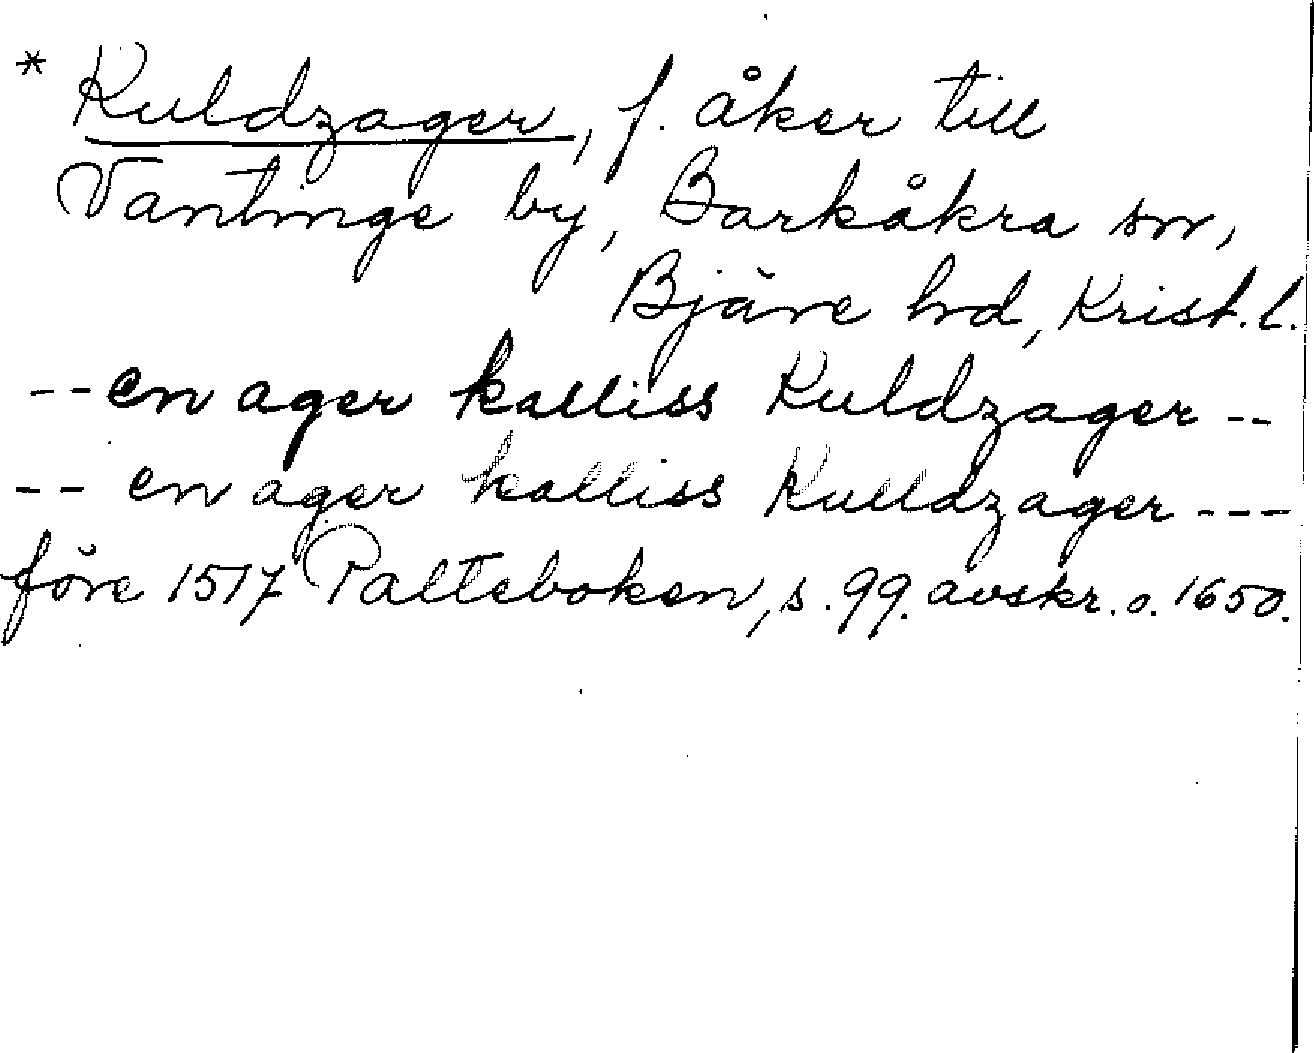 * Kuldzager, f. åker till
Vantinge by, Barkåkra sn,
Bjäre hd, Krist. l.
-- en ager kalliss Kuldzager --
-- en ager kalliss Kulldzager ---
före 1517 Palteboken, s. 99. avskr. o. 1650.